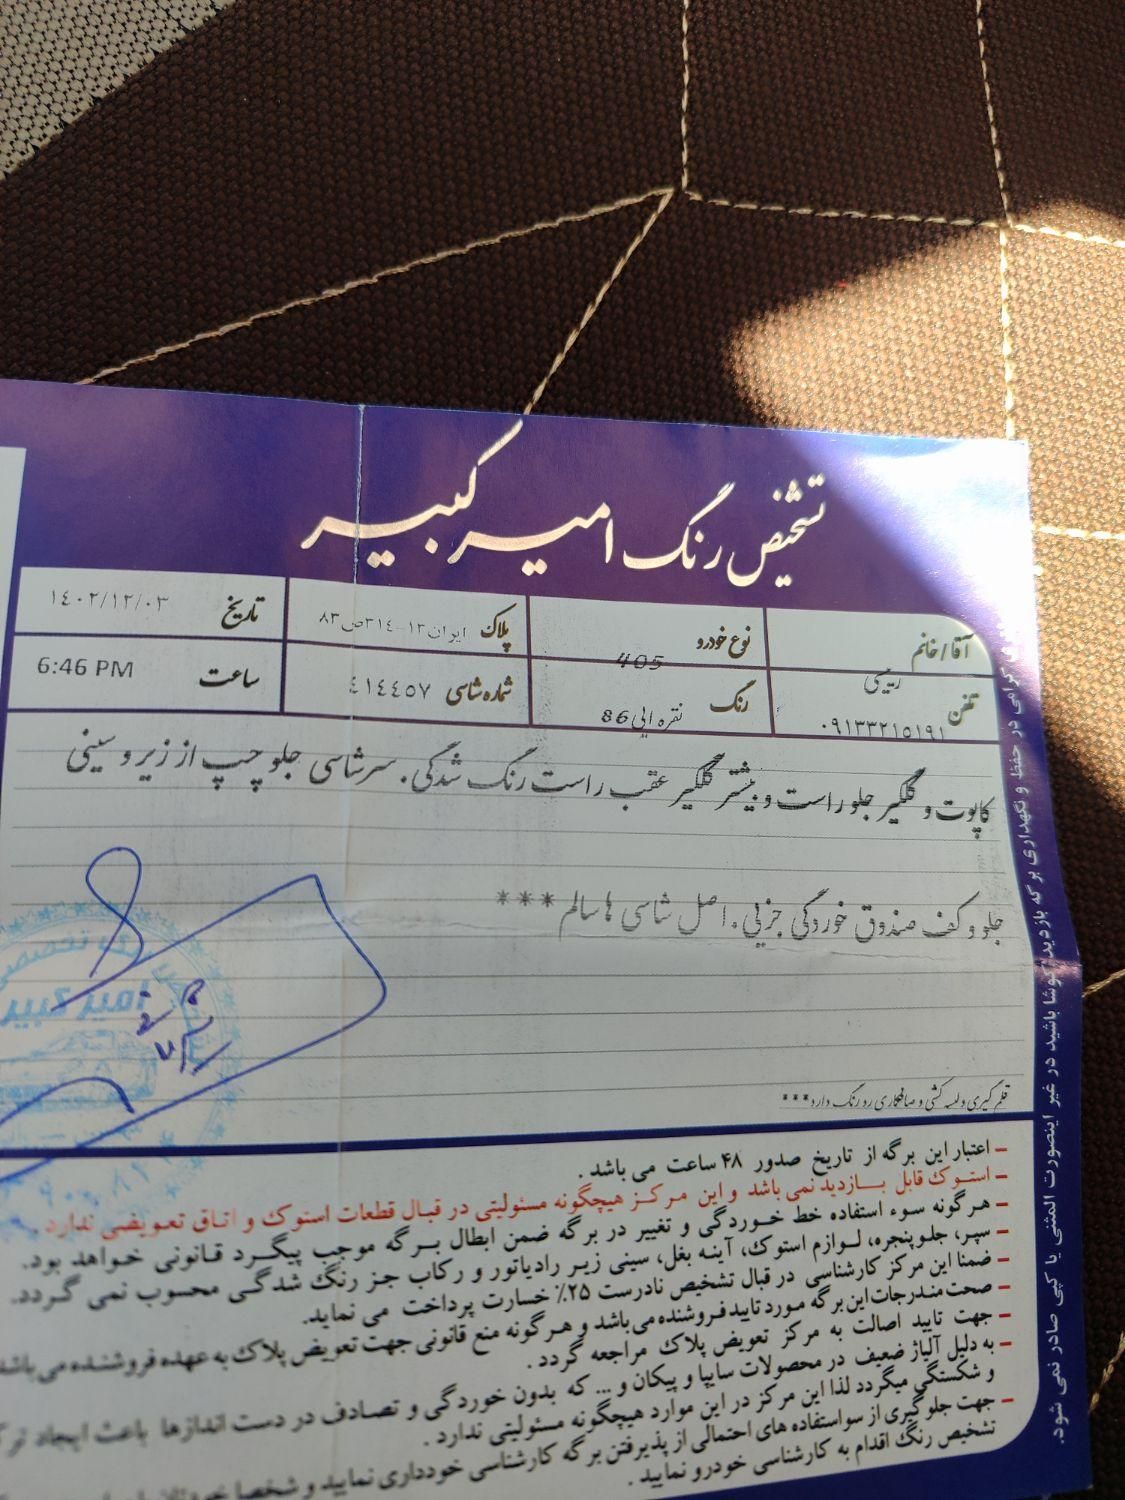 تشخیص رنگ امیرکبیر
آقا/خانم
رییسی
نوع خودرو
405
پلاک ایران ۱۳-۳۱٤ص۸۳
تاریخ ۱٤۰۲/۱۲/۰۳
تلفن ۰۹۱۳۳۲۱۵۱۹۱
رنگ نقره ایی 86
شماره شاسی ٤۱٤٤٥۷
ساعت 6:46 PM
کاپوت و گلگیر جلو راست و بیشتر گلگیر عقب راست رنگ شدگی. سرشاسی جلو چپ از زیر و سینی
جلو و کف صندوق خوردگی جزیی. اصل شاسی ها سالم ***
قلم گیری و لیسه کشی و صافکاری رو رنگ دارد***
– اعتبار این برگه از تاریخ صدور ۴۸ ساعت می باشد .
– استوک قابل بازدید نمی باشد و این مرکز هیچگونه مسئولیتی در قبال قطعات استوک و اتاق تعویضی ندارد .
– هرگونه سوء استفاده خط خوردگی و تغییر در برگه ضمن ابطال برگه موجب پیگرد قانونی خواهد بود.
– سپر، جلوپنجره، لوازم استوک، آینه بغل، سینی زیر رادیاتور و رکاب جز رنگ شدگی محسوب نمی گردد.
– ضمنا این مرکز کارشناسی در قبال تشخیص نادرست ۲۵٪ خسارت پرداخت می نماید.
– صحت مندرجات این برگه مورد تایید فروشنده می باشد و هرگونه منع قانونی جهت تعویض پلاک به عهده فروشنده می باشد
– جهت تایید اصالت به مرکز تعویض پلاک مراجعه گردد .
– به دلیل آلیاژ ضعیف در محصولات سایپا و پیکان و... که بدون خوردگی و تصادف در دست اندازها باعث ایجاد
و شکستگی میگردد لذا این مرکز در این موارد هیچگونه مسئولیتی ندارد .
– جهت جلوگیری از سواستفاده های احتمالی از پذیرفتن برگه کارشناسی خودداری نمایید و شخصا
تشخیص رنگ اقدام به کارشناسی خودرو نمایید .
گرامی در حفظ و نگهداری برگه بازدید کوشا باشید در غیر اینصورت المثنی یا کپی صادر نمی شود.
امیر کبیر